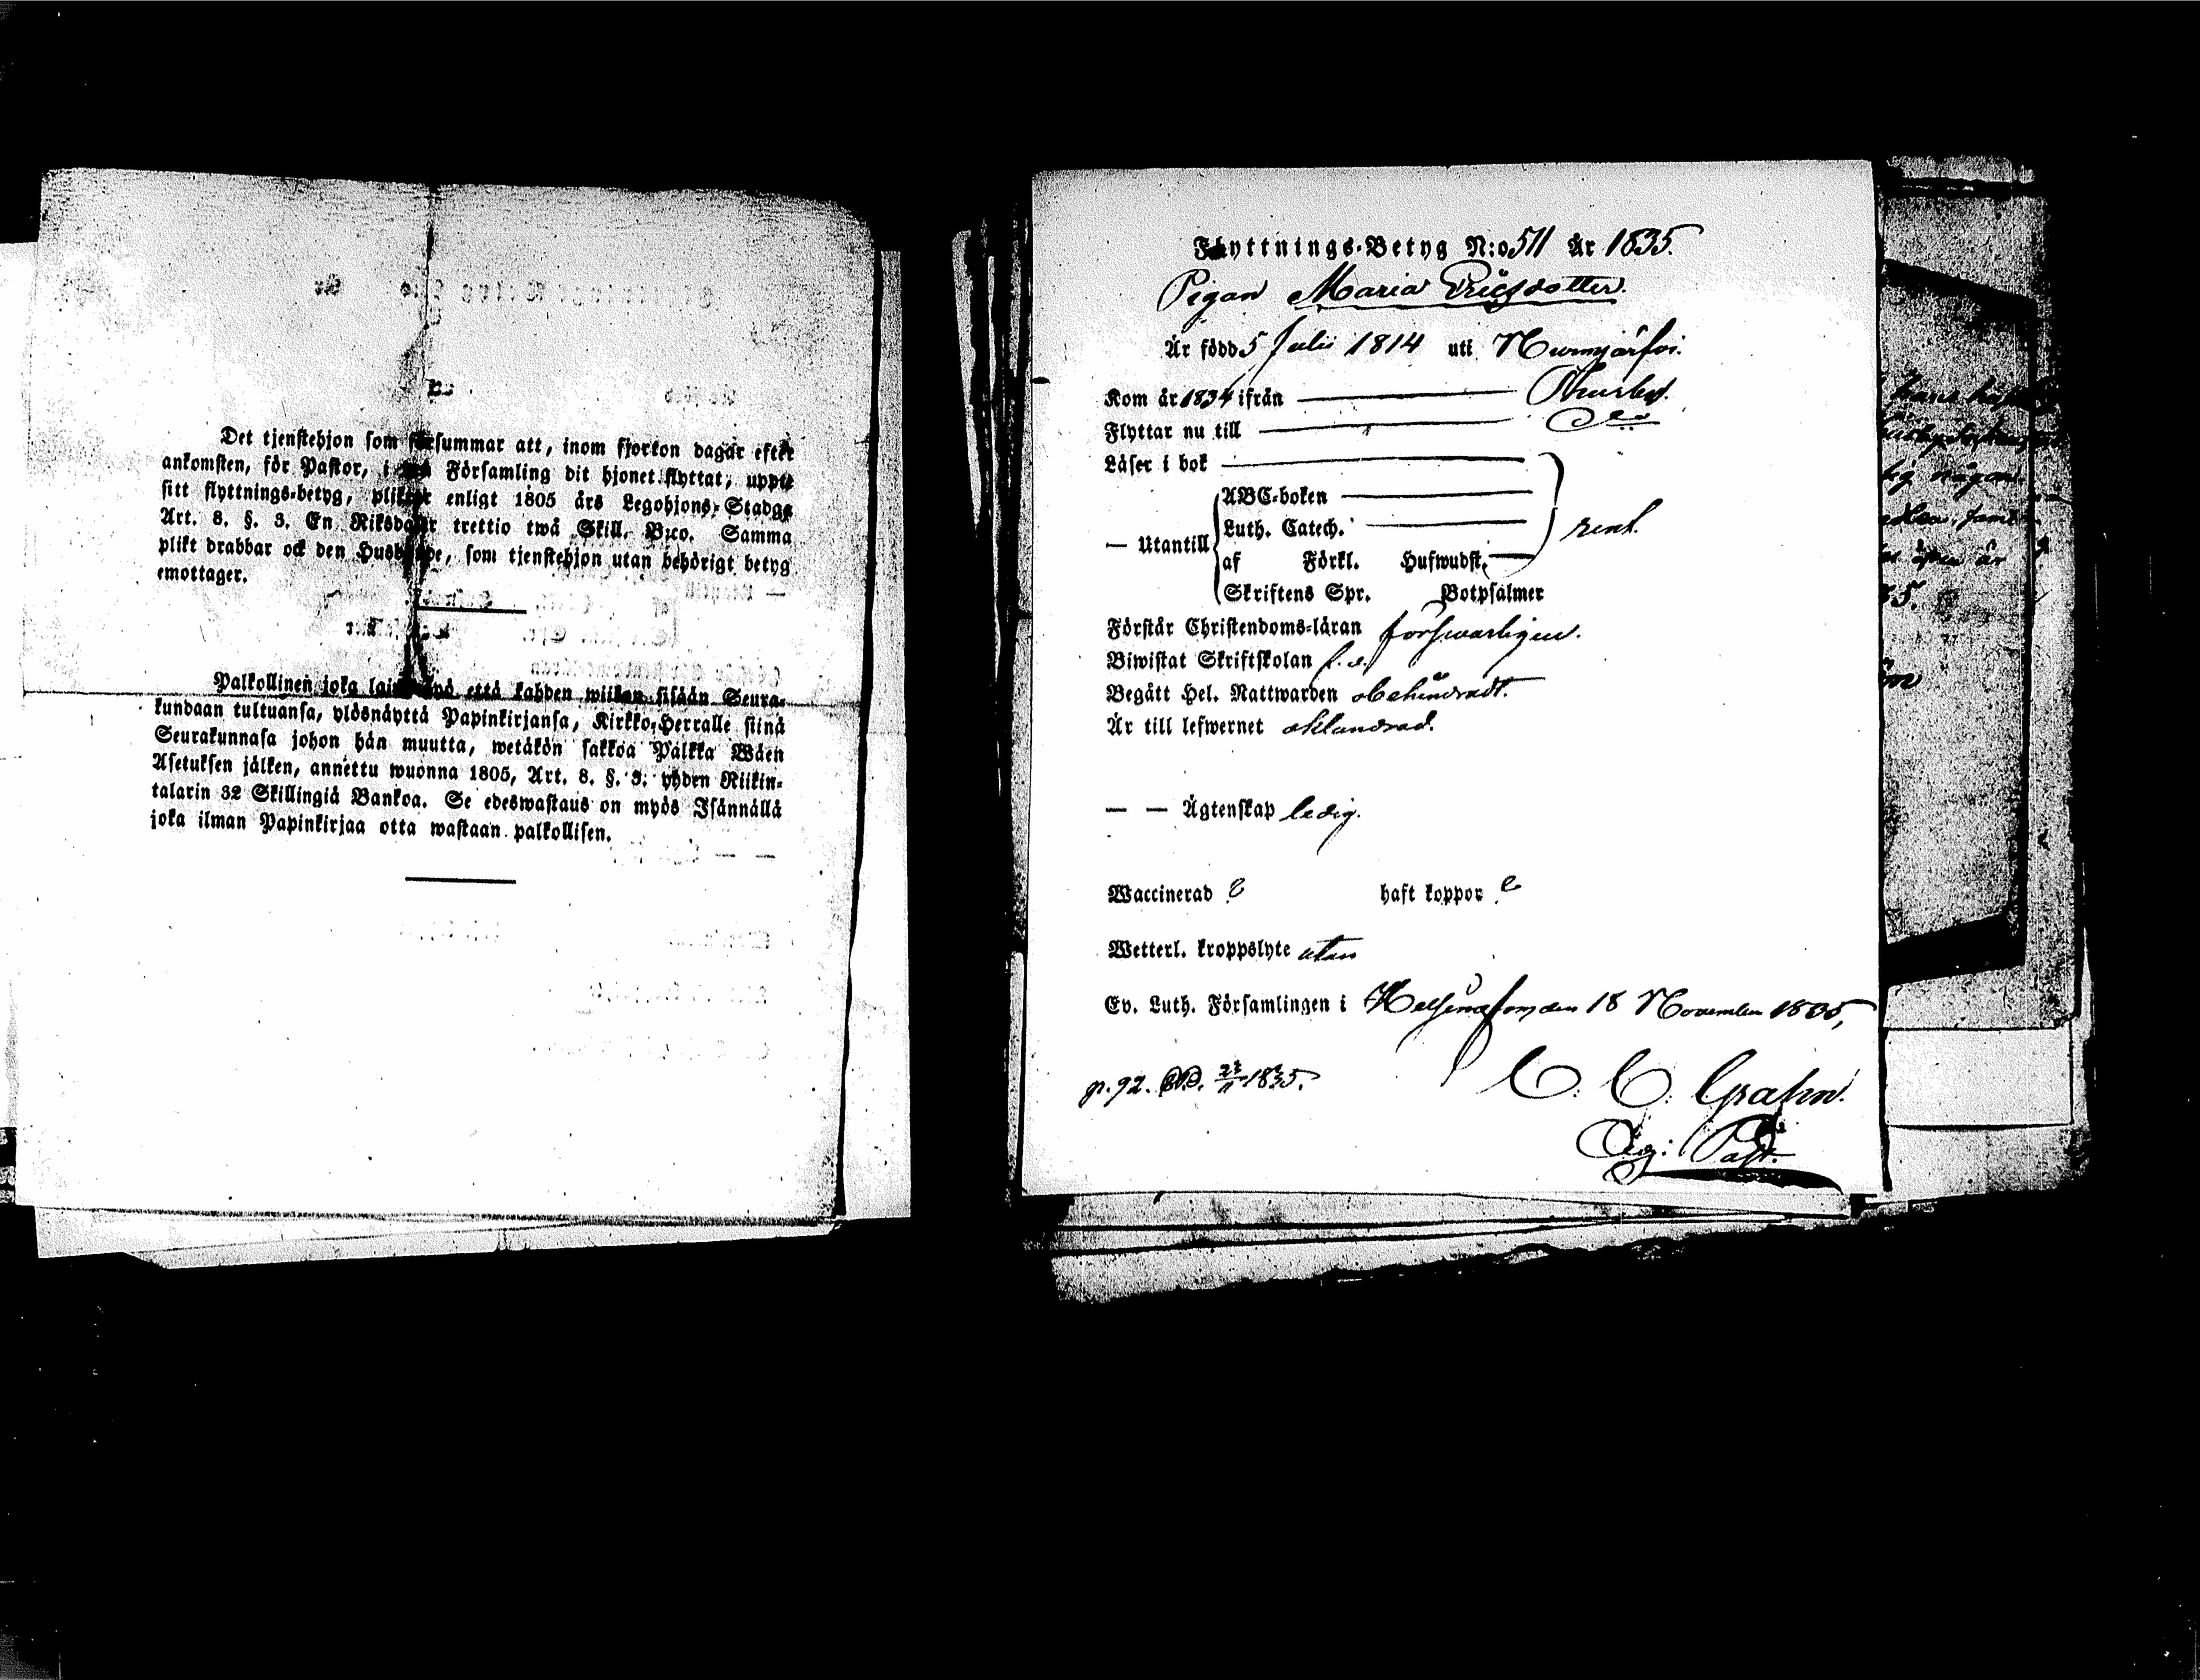 Det tjenstehjon som försummar att, inom fjorton dagar efter
ankomsten, för Pastor, i den Församling dit hjonet flyttat, uppte
sitt flyttnings-betyg, pliktar enligt 1805 års Legohjons-Stadga
Art. 8. §. 3. En Riksdaler trettio twå Skill. B:co. Samma
plikt drabbar ock den Husbonde, som tjenstehjon utan behörigt betyg
emottager.
Palkollinen joka laiminlyö että kahden wiikon sisään Seura-
kundaan tultuansa, ylösnäyttä Papinkirjansa, Kirkko-Herralle siinä
Seurakunnasa johon hän muutta, wetäkön sakkoa Palkka Wäen
Asetuksen jälken, annettu wuonna 1805, Art. 8. §. 3. yhden Riikin-
talarin 32 Skillingiä Bankoa. Se edeswastaus on myös Isännällä
joka ilman Papinkirjaa otta wastaan palkollisen.
Flyttnings-Betyg N:o 511 År 1835.
Pigan Maria Ericsdotter.
Är född 5 Julii 1814 uti Nurmjärfvi.
Kom år 1834 ifrån Thusby.
Flyttar nu till
Läser i bok
ABC-boken
Luth. Catech.
— Utantill rent.
af Förkl. Hufwudst.
Skriftens Spr. Botpsalmer
Förstår Christendoms-läran försvarligen.
Biwistat Skriftskolan
Begått Hel. Nattwarden obehindradt.
Är till lefwernet oklandrad.
— — Ägtenskap ledig.
Waccinerad haft koppor
Wetterl. kroppslyte utan
Ev. Luth. Församlingen i Helsingfors den 18 November 1835,
p. 92. 23/11 1835.
C. C. Grahn.
Past.